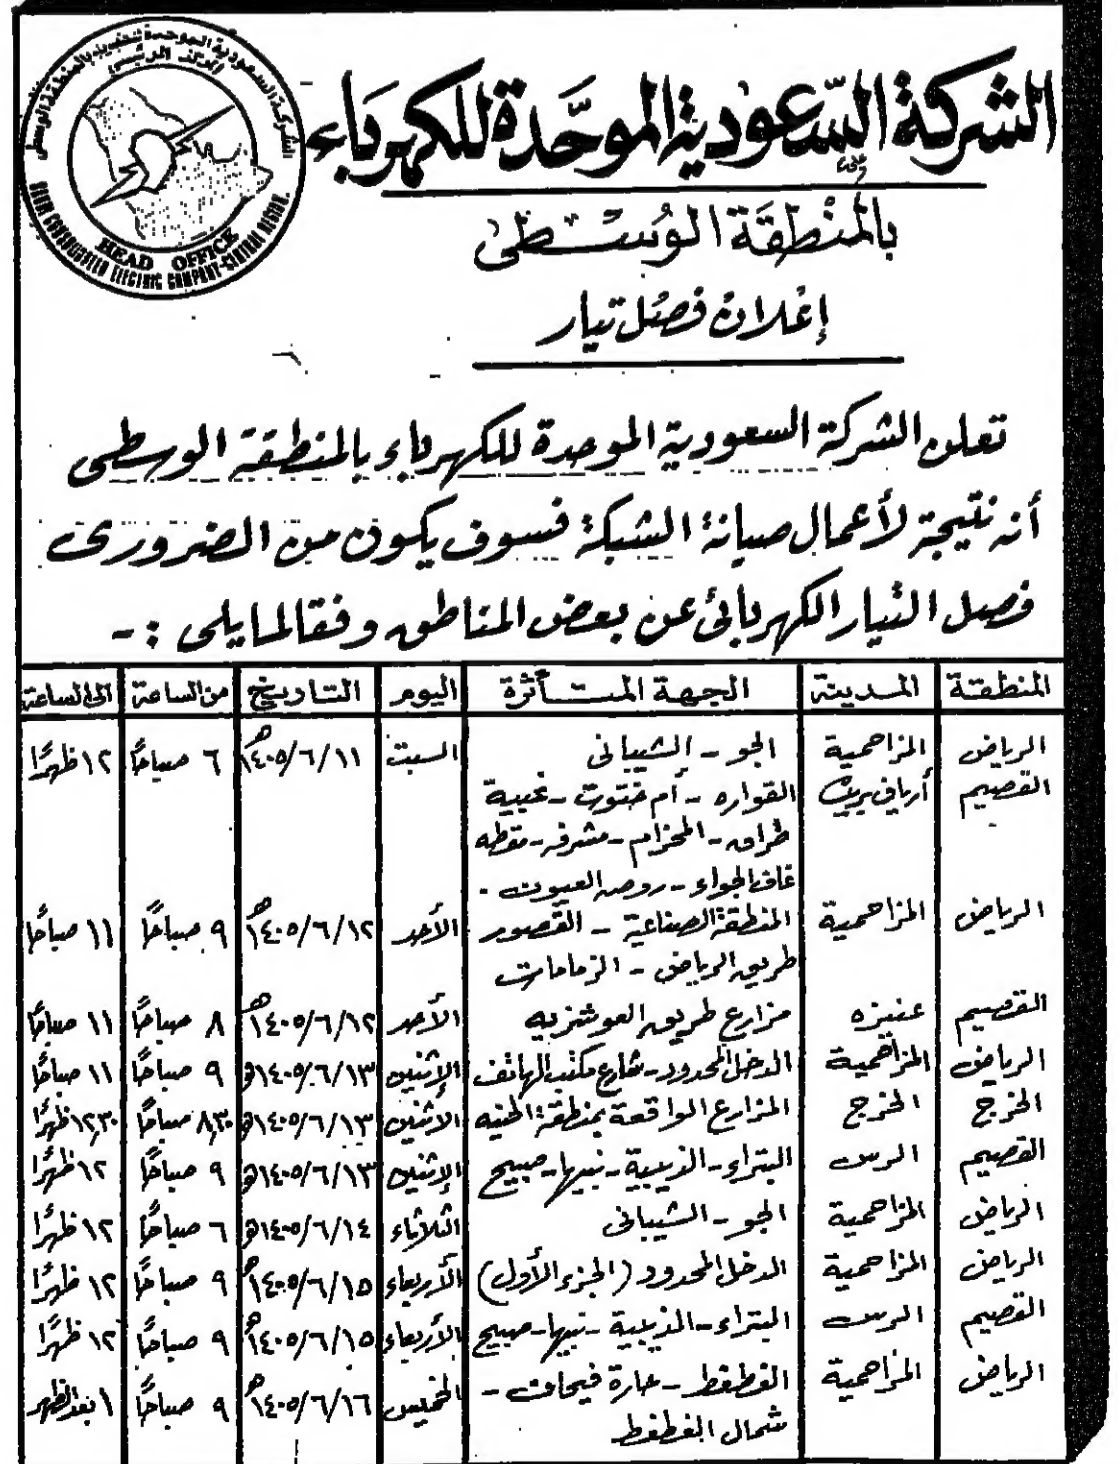 الشركة السعودية الموحدة بالمنطقة الوسطى
المركز الرئيسي
HEAD OFFICE
ELECTRIC COMPANY-CENTRAL
الشركة السّعودية الموحَّدة للكهرباء
بالمنْطقَة الوُسْطى
إعْلان فصْل تيار
تعلن الشركة السعودية الموحدة للكهرباء بالمنطقة الوسطى
أنه نتيجة لأعمال صيانة الشبكة فسوف يكون من الضرورى
فصل التيار الكهربائى عن بعض المناطق وفقا لما يلى :-
المنطقة المدينة الجهة المتأثرة اليوم التاريخ من الساعة الى الساعة
الرياض المزاحمية الجو - الشيبانى السبت ١٤٠٥/٦/١١هـ ٦ صباحًا ١٢ ظهرًا
القصيم أرياف القواره - أم
طراق - المخرام - مشرفه
غاف الجواء - روض العيون -
الرياض المزاحمية المنطقة الصناعية - القصور الأحد ١٤٠٥/٦/١٢هـ ٩ صباحًا ١١ صباحًا
طريق الرياض - الزمامات
القصيم عنيزه مزارع طريق العوشزيه الأحد ١٤٠٥/٦/١٢هـ ٨ صباحًا ١١ صباحًا
الرياض المزاحمية الدخل المحدود - شارع مكتب الهاتف الإثنين ١٤٠٥/٦/١٣هـ ٩ صباحًا ١١ صباحًا
الخرج الخرج المزارع الواقعة بمنطقة الاثنين ١٤٠٥/٦/١٣هـ ٨,٣٠ صباحًا ١٢,٣٠ ظهرًا
القصيم الرس البتراء - الذيبية - نبيها - صبيح الإثنين ١٤٠٥/٦/١٣هـ ٩ صباحًا ١٢ ظهرًا
الرياض المزاحمية الجو - الشيبانى الثلاثاء ١٤٠٥/٦/١٤هـ ٦ صباحًا ١٢ ظهرًا
الرياض المزاحمية الدخل المحدود (الجزء الأول) الأربعاء ١٤٠٥/٦/١٥هـ ٩ صباحًا ١٢ ظهرًا
القصيم الرس البتراء - الذيبية - نبيها - صبيح الأربعاء ١٤٠٥/٦/١٥هـ ٩ صباحًا ١٢ ظهرًا
الرياض المزاحمية الغطغط - حارة فيحان - الخميس ١٤٠٥/٦/١٦هـ ٩ صباحًا ١ بعد الظهر
شمال الغطغط